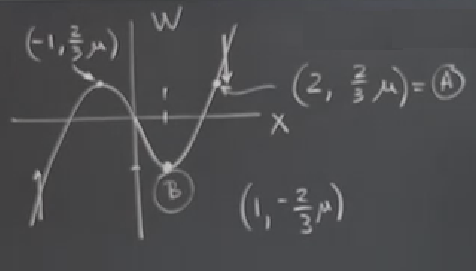 W
(-1, 2/3 μ)
(2, 2/3 μ) = Ⓐ
1
X
Ⓑ
(1, -2/3 μ)